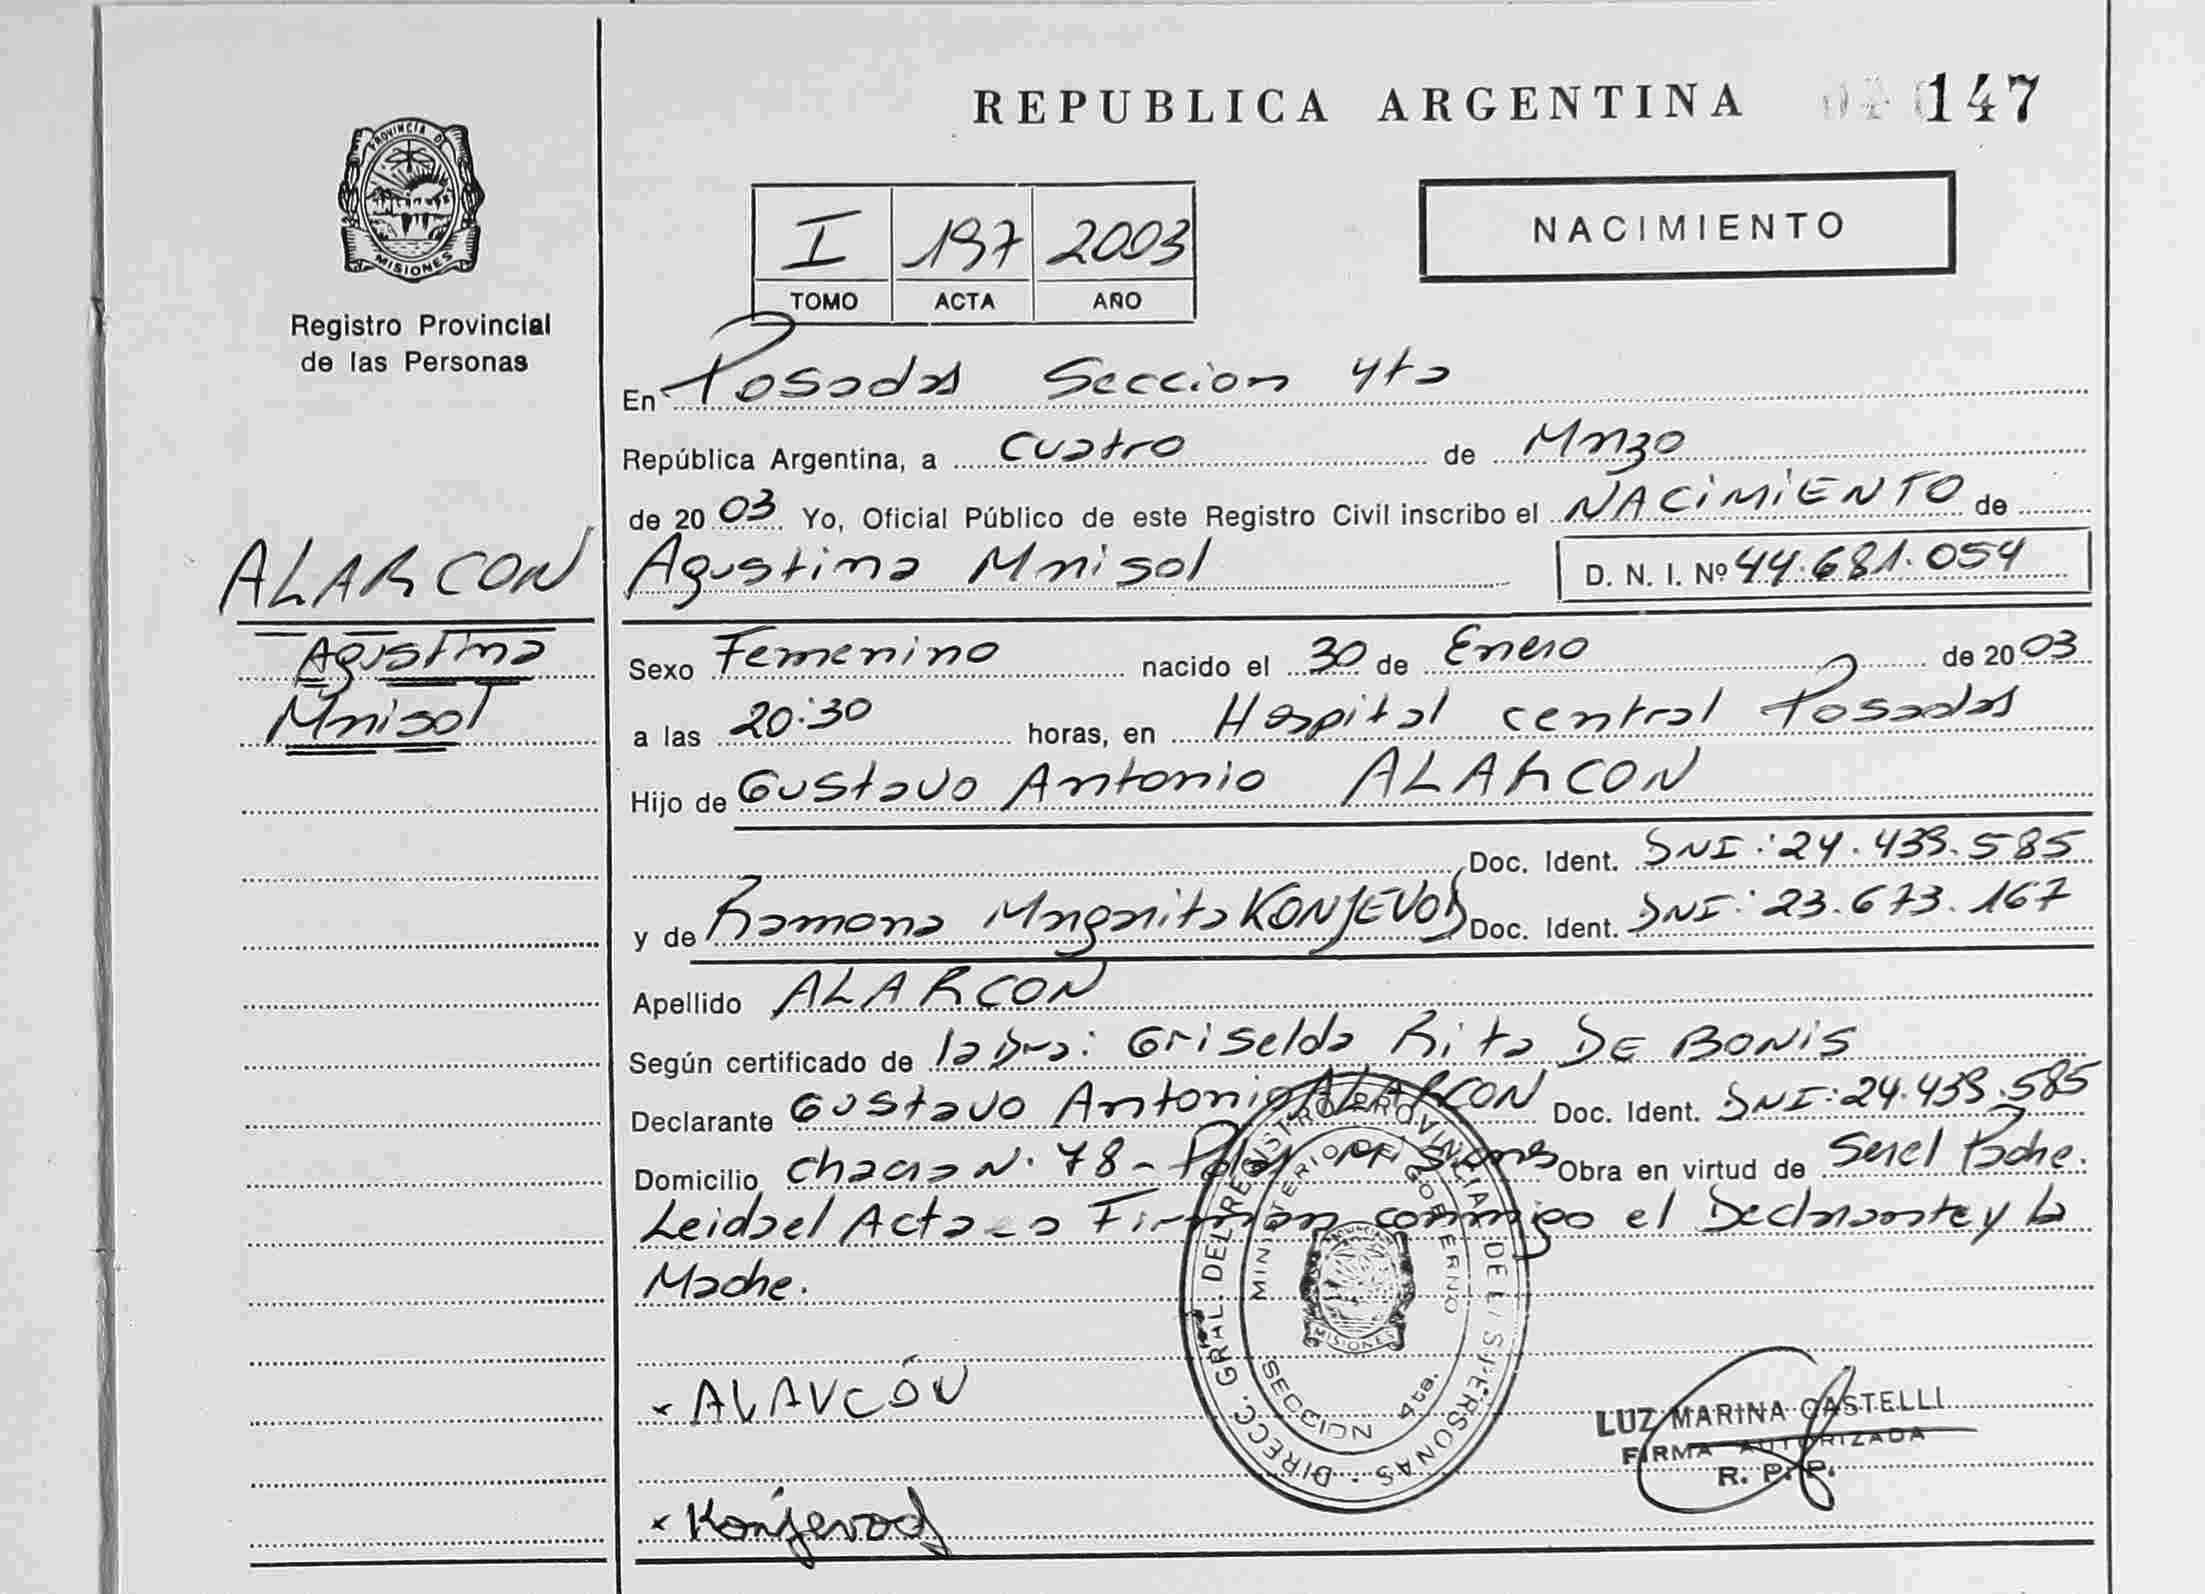 REPUBLICA ARGENTINA 147
PROVINCIA DE MISIONES
Registro Provincial
de las Personas
I 197 2003
TOMO ACTA AÑO
NACIMIENTO
En Posadas Seccion 4ta
República Argentina, a cuatro de Marzo
de 2003 Yo, Oficial Público de este Registro Civil inscribo el NACIMIENTO de
ALARCON
Agustina Marisol D. N. I. Nº 44.681.054
Agustina
Marisol
Sexo Femenino nacido el 30 de Enero de 2003
a las 20:30 horas, en Hospital central Posadas
Hijo de Gustavo Antonio ALARCON
Doc. Ident. DNI: 24.439.585
y de Ramona Margarita KONJEVOD Doc. Ident. DNI: 23.673.167
Apellido ALARCON
Según certificado de la Dra: Griselda Rita DE BONIS
Declarante Gustavo Antonio ALARCON Doc. Ident. DNI: 24.439.585
Domicilio Chacra N. 78 - Pdas Misiones Obra en virtud de Ser el Padre.
Leida el Acta Firman conmigo el Declarante y la
Madre.
DIRECC. GRAL. DEL REGISTRO PROVINCIAL DE LAS PERSONAS
MINISTERIO DE GOBIERNO
PROVINCIA DE MISIONES
SECCION 4ta.
x ALARCÓN
LUZ MARINA CASTELLI
FIRMA AUTORIZADA
R. P. P.
x Konjevod